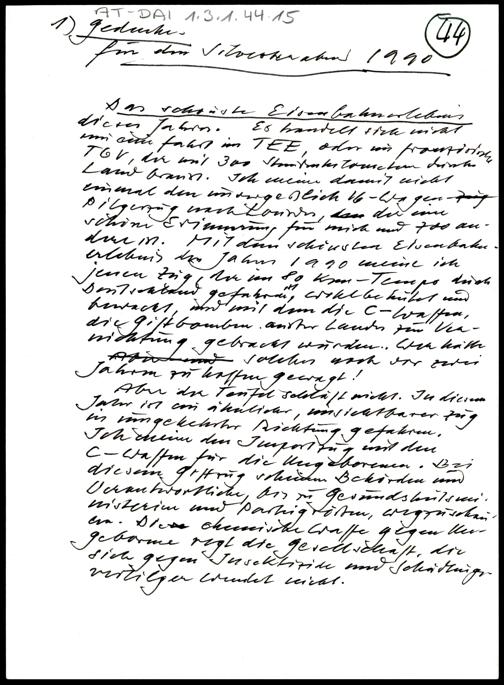 AT-DAI 1.3.1.44.15
44
1) Gedanken
für den Silvesterabend 1990
Das schönste Eisenbahnerlebnis
dieses Jahres. Es handelt sich nicht
um eine Fahrt im TEE, oder im französischen
TGV, der mit 300 Stundenkilometern durchs
Land braust. Ich meine damit nicht
einmal den 16-Wagen-
Pilgerzug nach Lourdes, der eine
schöne Erinnerung für mich und 700 an-
dere ist. Mit dem schönsten Eisenbahn-
erlebnis des Jahres 1990 meine ich
jenen Zug, der im 80 Km-Tempo durch
Deutschland gefahren ist, wohlbehütet und
bewacht, und mit dem die C-Waffen,
die Giftbomben ausser Landes zur Ver-
nichtung gebracht wurden. Wer hätte
solches noch vor zwei
Jahren zu hoffen gewagt!
Aber der Teufel schläft nicht. In diesem
Jahr ist ein ähnlicher, unsichtbarer Zug
in umgekehrter Richtung gefahren.
Ich meine den Importzug mit den
C-Waffen für die Ungeborenen. Bei
diesem Giftzug scheinen Behörden und
Verantwortliche, bis zu Gesundheitsmi-
nisterien und Parteigrößen, wegzuschau-
en. Die chemische Waffe gegen Un-
geborene regt die Gesellschaft, die
sich gegen Insektizide und Schädlings-
vertilger wendet nicht.